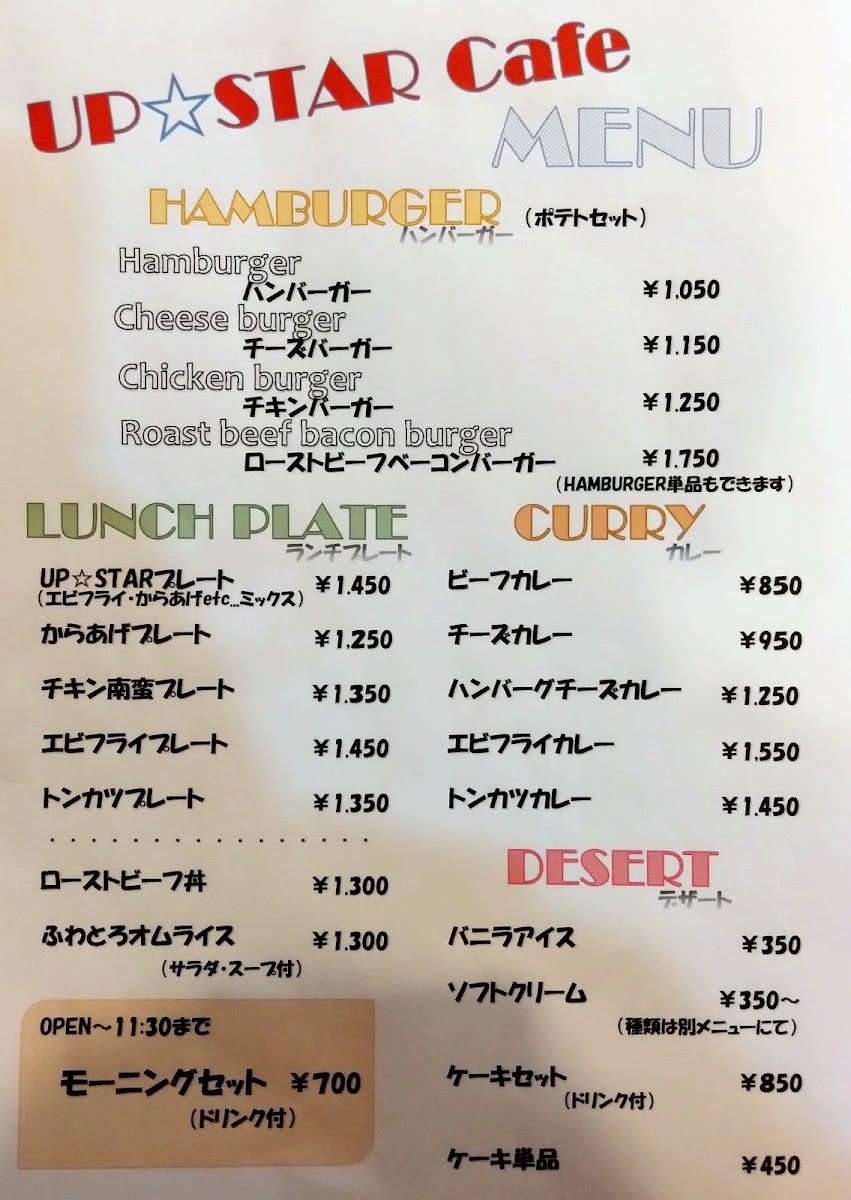 UP☆STAR Cafe
MENU
HAMBURGER (ポテトセット)
ハンバーガー
Hamburger
ハンバーガー ¥1.050
Cheese burger
チーズバーガー ¥1.150
Chicken burger
チキンバーガー ¥1.250
Roast beef bacon burger
ローストビーフベーコンバーガー ¥1.750
(HAMBURGER単品もできます)
LUNCH PLATE
ランチプレート
UP☆STARプレート ¥1.450
(エビフライ・からあげetc...ミックス)
からあげプレート ¥1.250
チキン南蛮プレート ¥1.350
エビフライプレート ¥1.450
トンカツプレート ¥1.350
・・・・・・・・・・・・・・・・
ローストビーフ丼 ¥1.300
ふわとろオムライス ¥1.300
(サラダ・スープ付)
OPEN～11:30まで
モーニングセット ¥700
(ドリンク付)
CURRY
カレー
ビーフカレー ¥850
チーズカレー ¥950
ハンバーグチーズカレー ¥1.250
エビフライカレー ¥1.550
トンカツカレー ¥1.450
DESERT
デザート
バニラアイス ¥350
ソフトクリーム ¥350～
(種類は別メニューにて)
ケーキセット ¥850
(ドリンク付)
ケーキ単品 ¥450